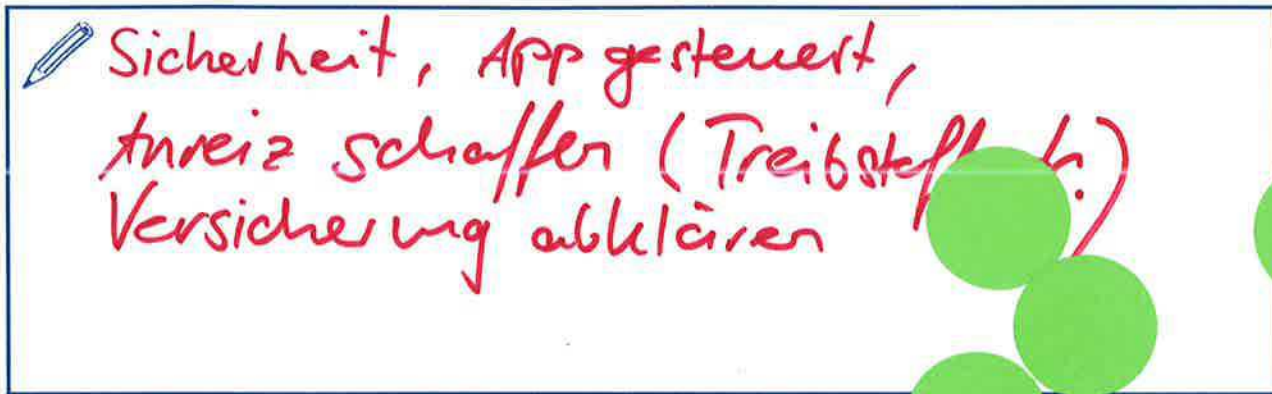 Sicherheit, App gesteuert,
Anreiz schaffen (Treibstoff
Versicherung abklären